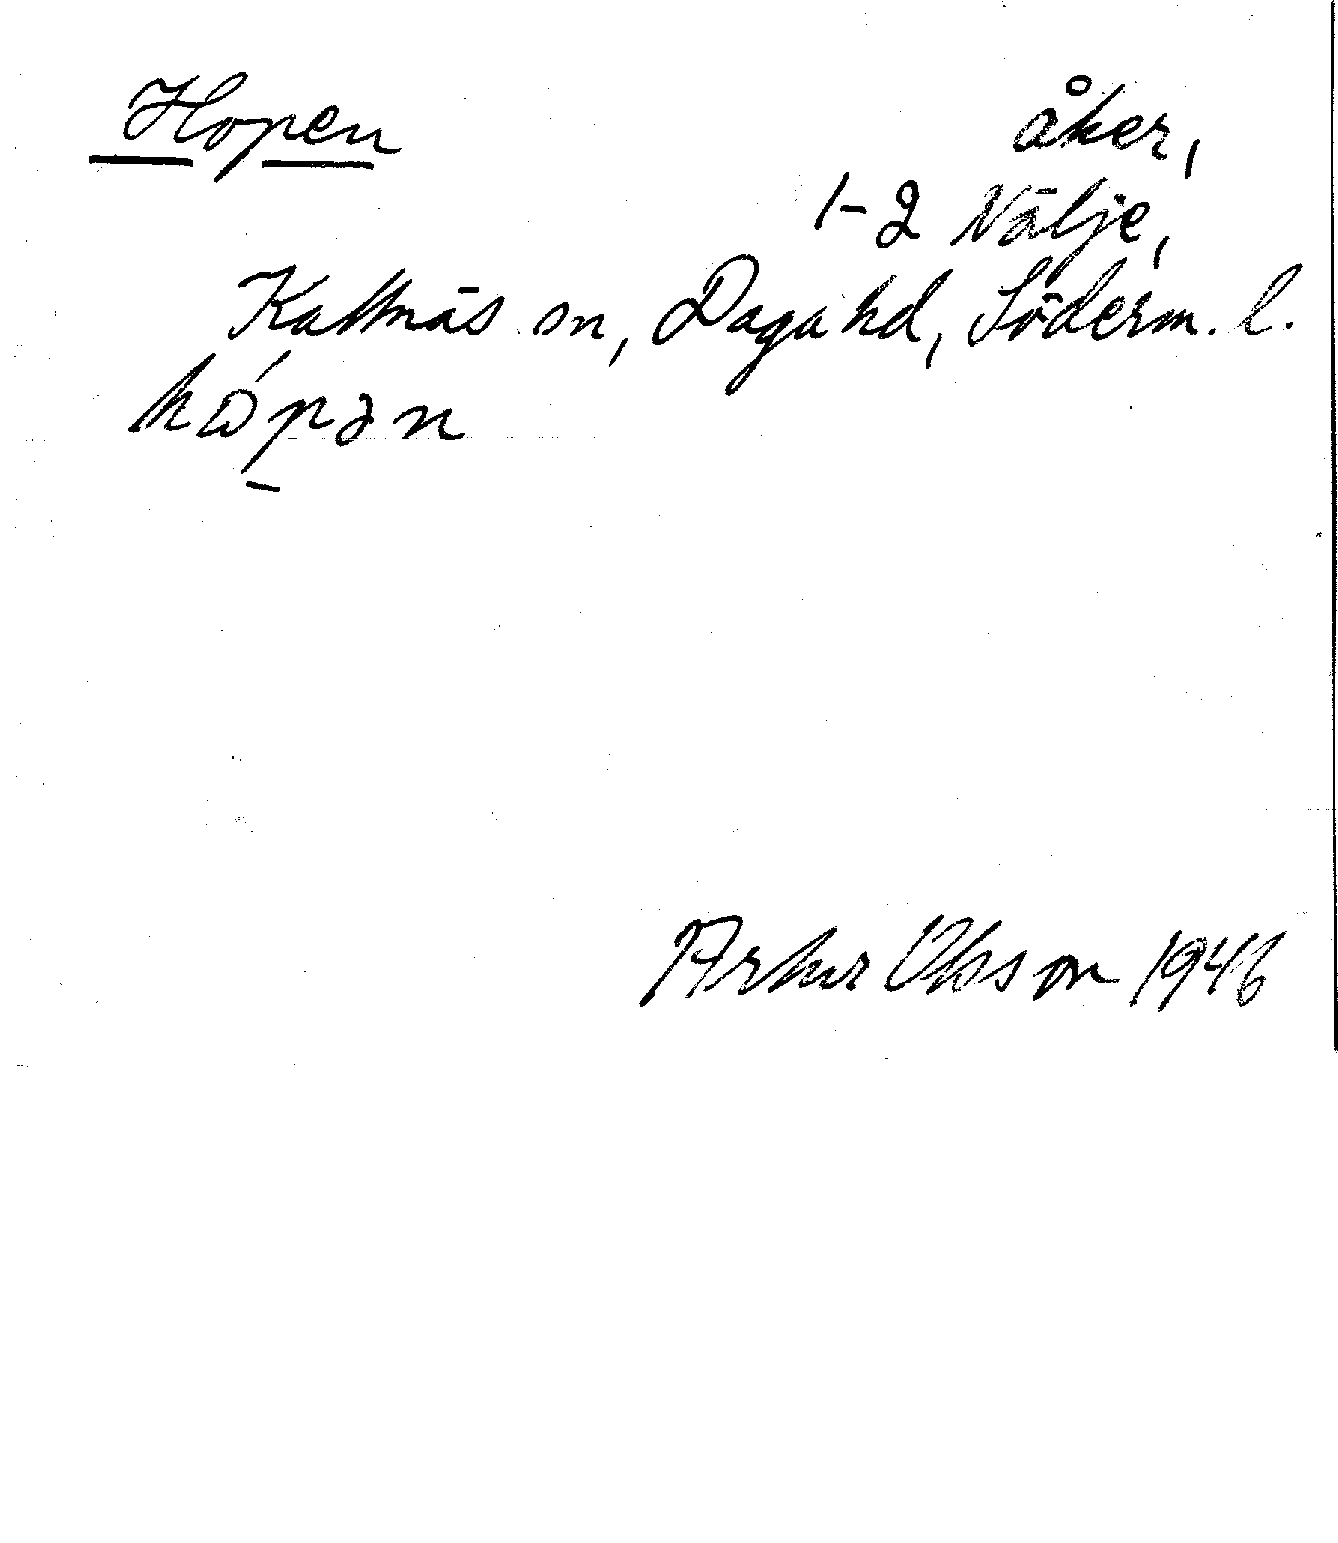 Hopen åker,
1-2 Nälje,
Kattnäs sn, Daga hd, Söderm. l.
hώpən
Artur Olsson 1946